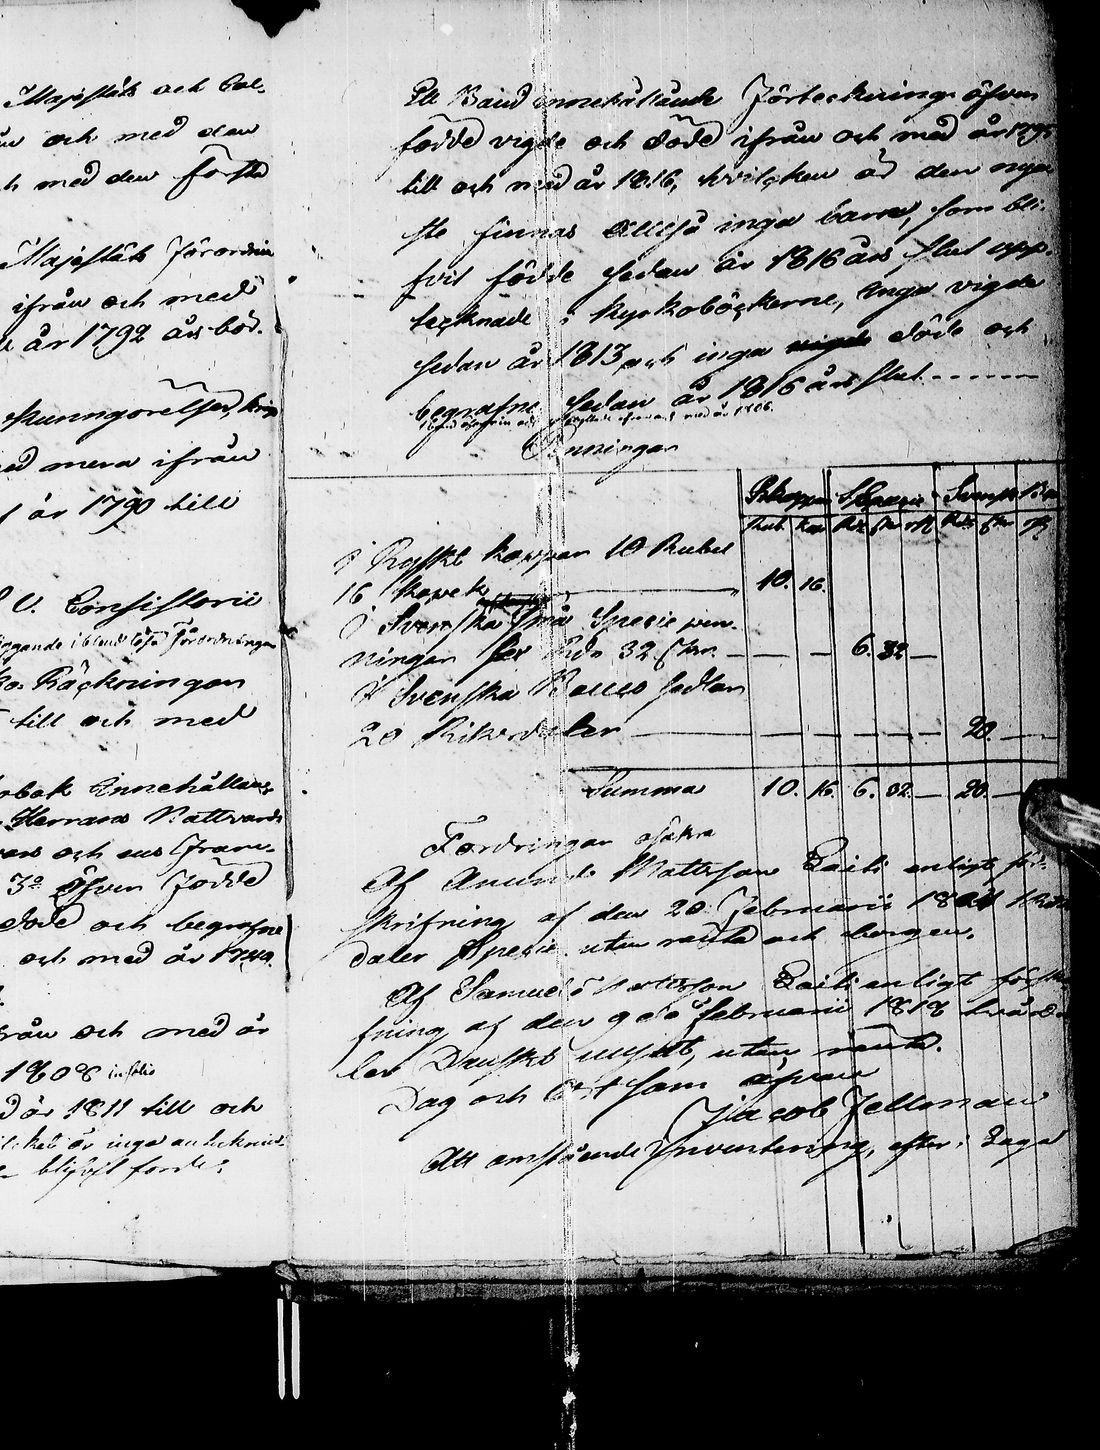 Majestäts och Col-
och med den
med den förste
Majestäts Förordnin
ifrån och med
år 1792 års bör-
kunngörelser,
med mera ifrån
år 1790 till
V. Consistorii
liggande ibland lösa Förordningar
Räckningar
till och med
Innehållan-
Herrans Nattvards
och ens fram-
3o öfver Födde
döde och begrafne
och med år
ifrån och med år
1808 in folio
år 1811 till och
är inga anteckni-
blifvit förde.
Ett Band innehållande Förteckning öfver
födde vigde och döde ifrån och med år
till och med år 1816, hvilcken är den nya-
ste finnas alltså inga barn, som bli-
fvit födde sedan år 1816 års slut upp-
tecknade i Kyrkoböckerne, inga vigde
sedan år 1813, och inga vigde döde och
begrafne sedan år 1816 års slut
med år 1806.
Penningar
Rkoppar Specie Svenska
Rub. Kop. Rdr sk. rst. Rdr sk. rst.
I Ryskt koppar 10 Rubel
16 Kopek 10. 16.
I Svenska Små Specie pen-
ningar sex Rdr 32 sk. 6. 32 —
I Svenska Banco sedlar
20 Riksdaler 20. —
Summa 10. 16. 6. 32. — 20. —
Fordringar osäkra
Af Anund Mattsson Laiti enligt för-
skrifning af den 20 Februarii
daler Specie utan ränta och borgen.
Af Samuel Mattsson Laiti enligt förskri-
fning af den 9de Februarii 1818
ler Danskt mynt, utan ränta.
Dag och Ort som ofvan
Jacob Fellman
Att omstående Inventering, efter i Laga